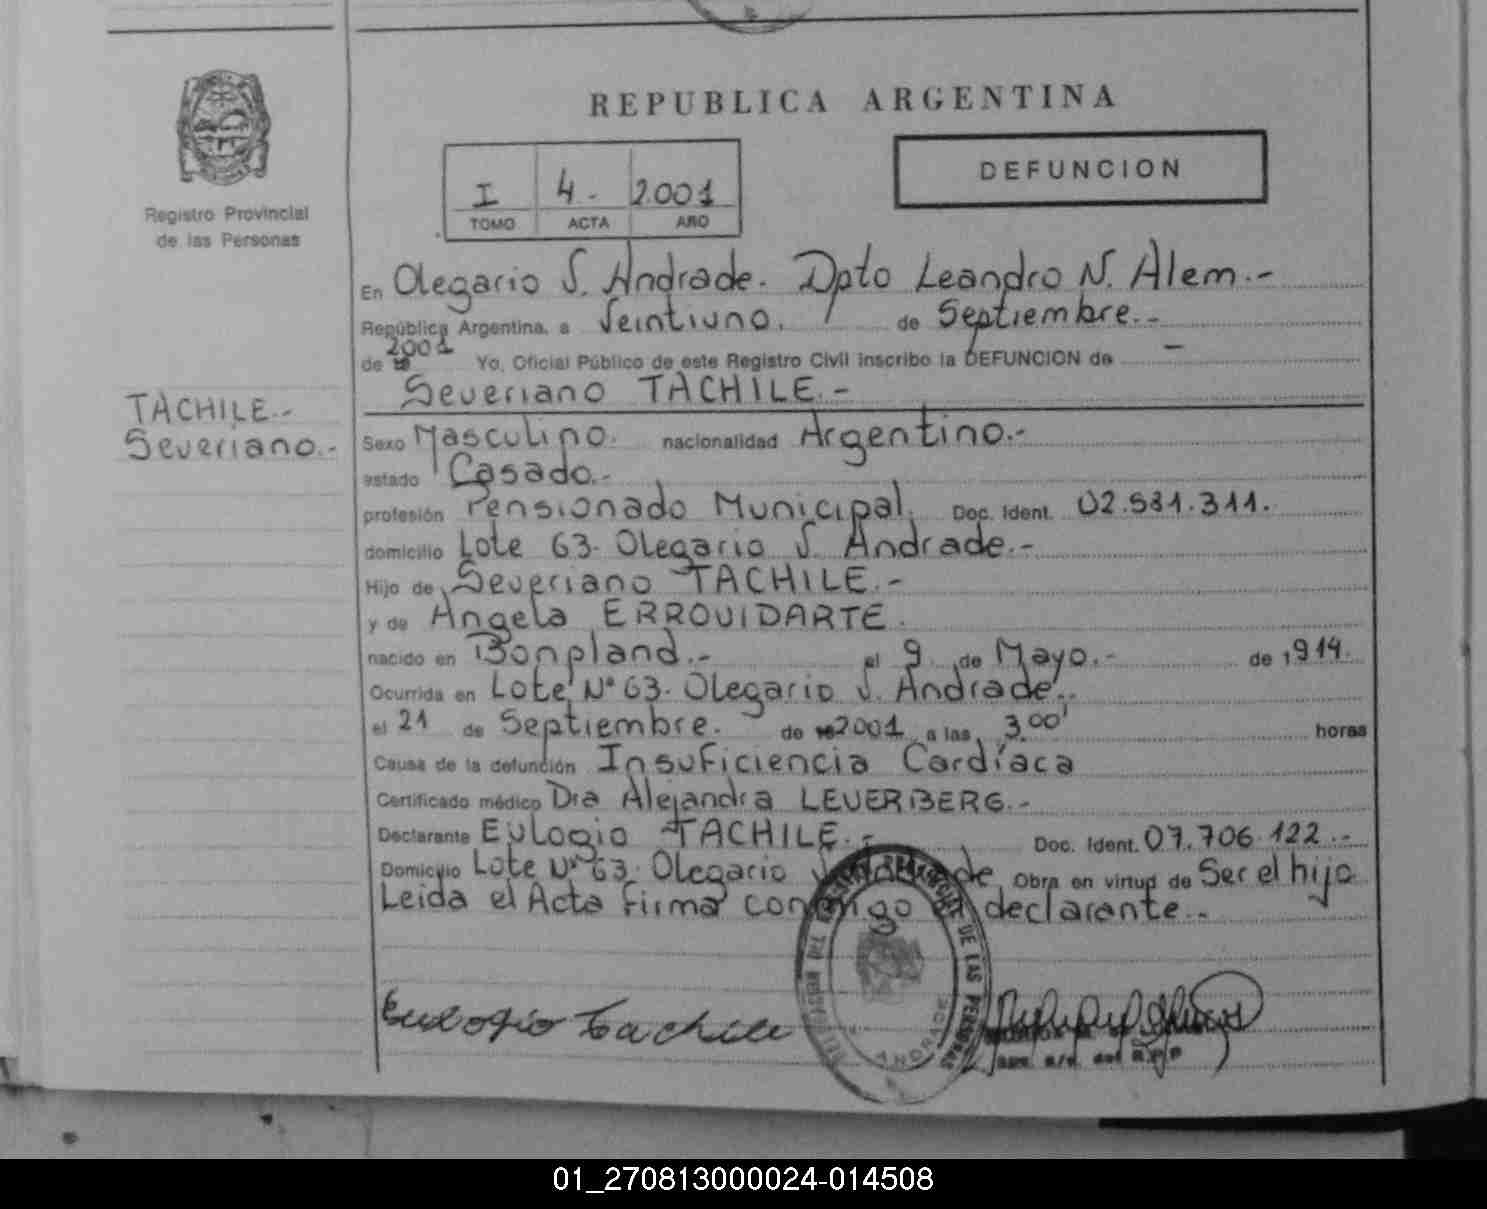 REPUBLICA ARGENTINA
Registro Provincial
de las Personas
I 4.- 2001
TOMO ACTA AÑO
DEFUNCION
En Olegario V. Andrade. Dpto Leandro N. Alem.-
República Argentina, a Veintiuno. de Septiembre.-
de 19 2001 Yo, Oficial Público de este Registro Civil inscribo la DEFUNCION de -
Severiano TACHILE.-
TACHILE.-
Severiano.-
Sexo Masculino. nacionalidad Argentino.-
estado Casado.-
profesión Pensionado Municipal. Doc. Ident. 02.581.311.
domicilio Lote 63. Olegario V. Andrade.-
Hijo de Severiano TACHILE.-
y de Angela ERROUIDARTE.
nacido en Bonpland.- el 9 de Mayo.- de 1.914.
Ocurrida en Lote Nº 63. Olegario V. Andrade.-
el 21 de Septiembre. de 19 2001 a las 3.00' horas
Causa de la defunción Insuficiencia Cardíaca
Certificado médico Dra Alejandra LEVERBERG.-
Declarante Eulogio TACHILE.- Doc. Ident. 07.706.122.-
Domicilio Lote Nº 63. Olegario V. Andrade Obra en virtud de Ser el hijo
Leida el Acta firma conmigo el declarante.-
Eulogio Tachile
DE LAS PERSONAS
ANDRADE
01_270813000024-014508